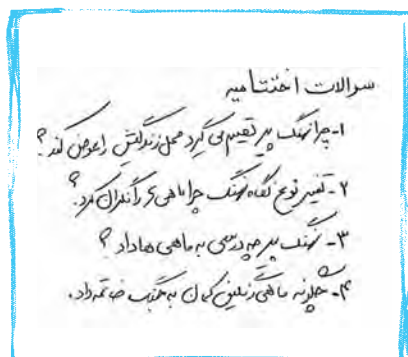 سوالات اختتامیه
۱- چرا نهنگ پیر تصمیم می گیرد محل زندگیش را عوض کند؟
۲- تغییر نوع نگاه نهنگ چرا ماهی ها را نگران کرد؟
۳- نهنگ پیر چه درسی به ماهی ها داد؟
۴- چگونه ماهی به جنگ خاتمه داد.